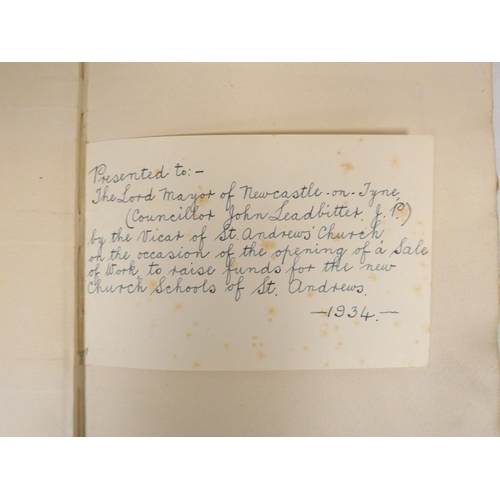 Presented to:-
The Lord Mayor of Newcastle-on-Tyne,
(Councillor John Leadbitter. J.P.)
by the Vicar of St. Andrews' Church
on the occasion of the opening of a Sale
of Work, to raise funds for the new
Church Schools of St. Andrews.
-1934.-